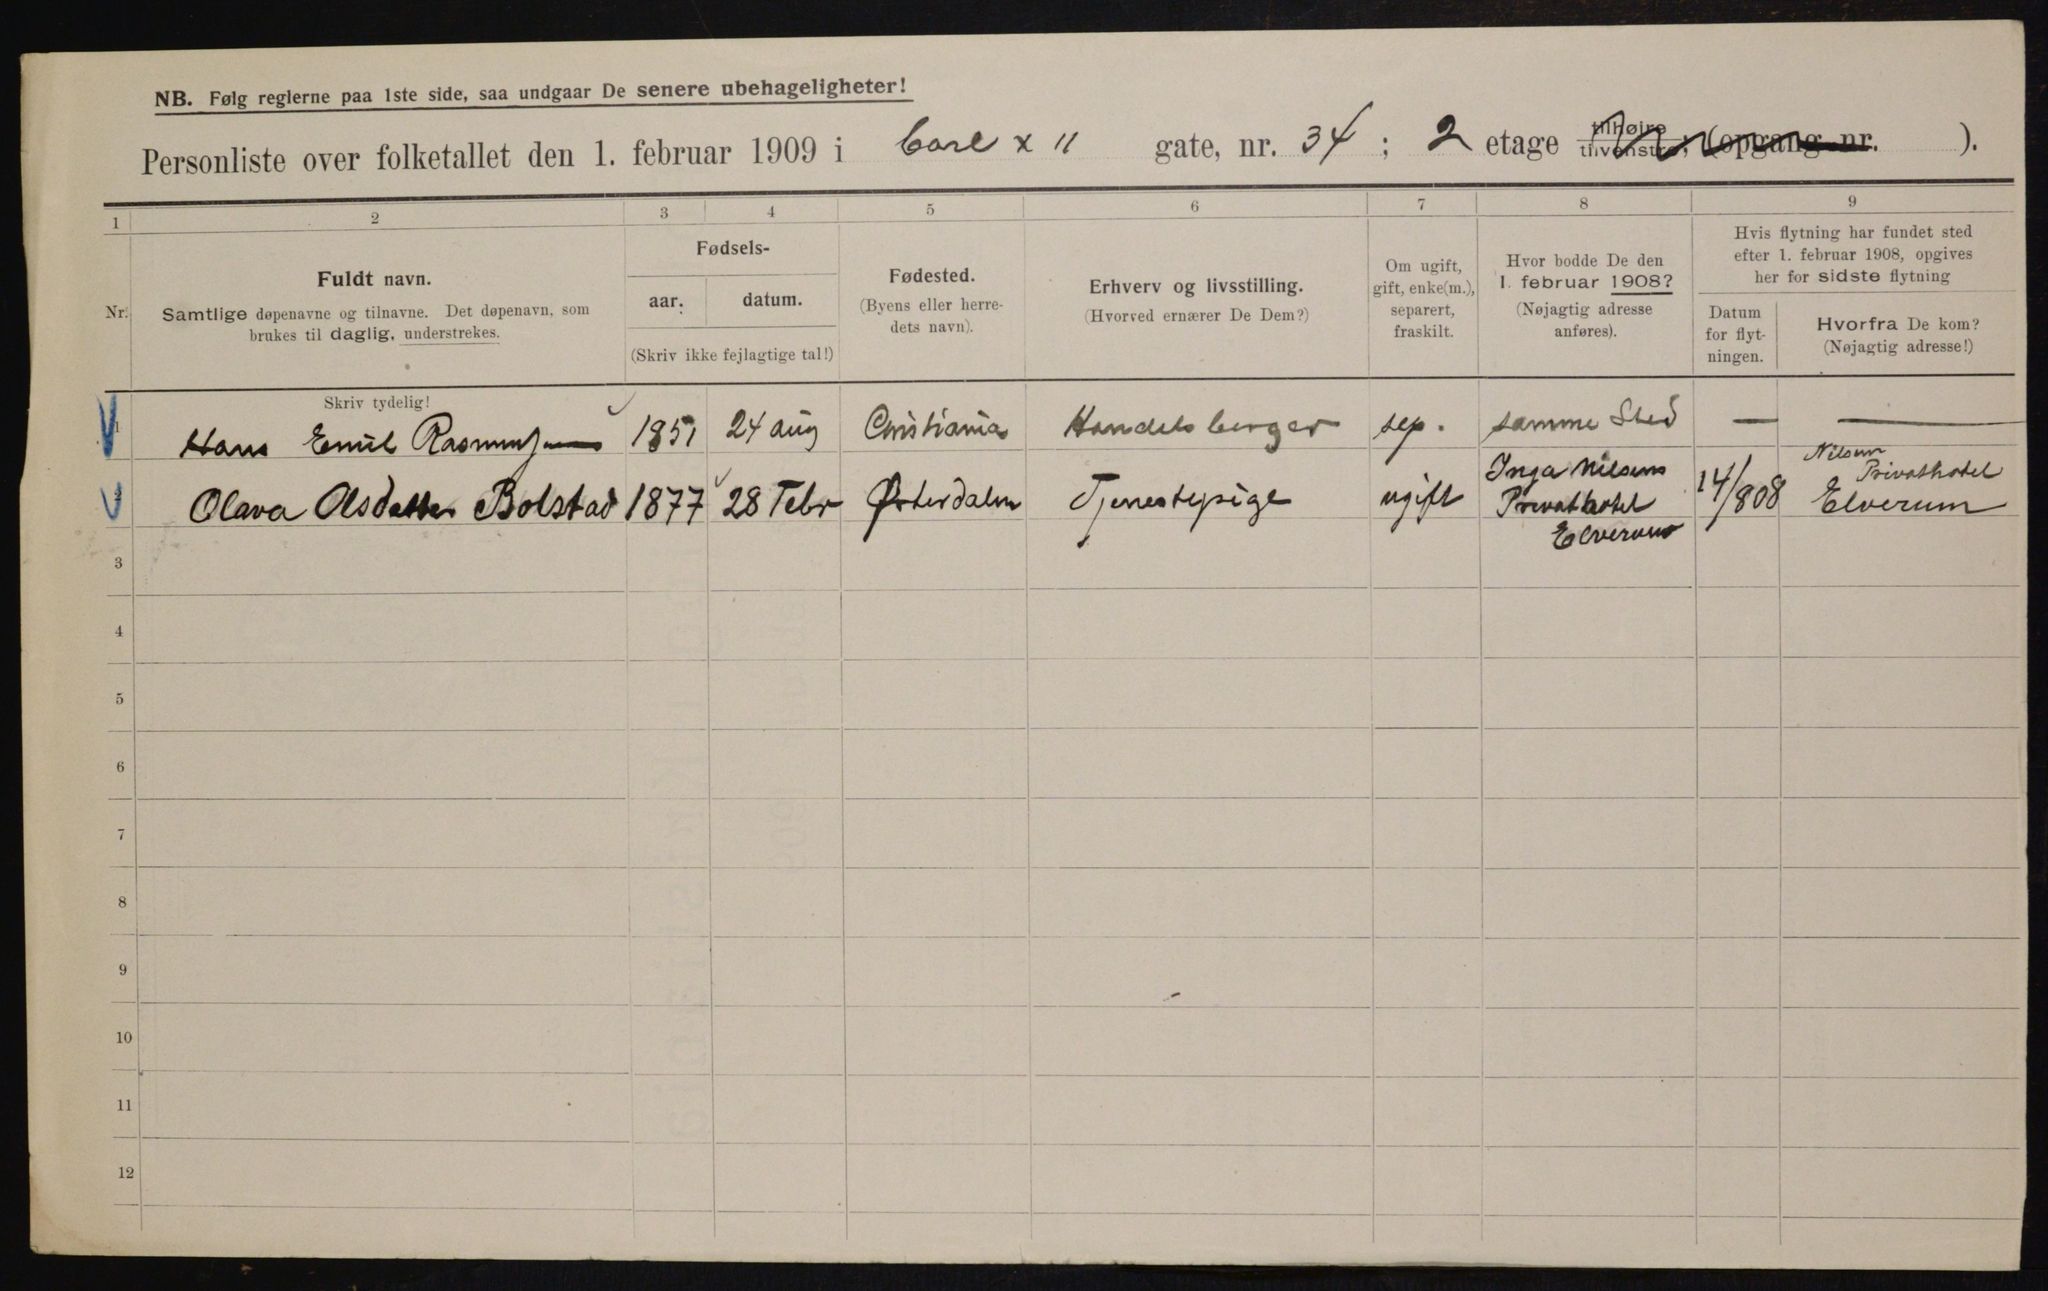 NB. Følg reglerne paa 1ste side, saa undgaar De senere ubehageligheter!
Personliste over folketallet den 1. februar 1909 i Carl X 11 gate, nr. 34; 2 etage tilhøire tilvenstre, (opgang nr. ).
1 2 3 4 5 6 7 8 9
Nr.
Fuldt navn.
Samtlige døpenavne og tilnavne. Det døpenavn, som
brukes til daglig, understrekes.
Fødsels-
aar. datum.
(Skriv ikke fejlagtige tal!)
Fødested.
(Byens eller herre-
dets navn).
Erhverv og livsstilling.
(Hvorved ernærer De Dem?)
Om ugift,
gift, enke(m.),
separert,
fraskilt.
Hvor bodde De den
1. februar 1908?
(Nøjagtig adresse
anføres).
Hvis flytning har fundet sted
efter 1. februar 1908, opgives
her for sidste flytning
Datum
for flyt-
ningen.
Hvorfra De kom?
(Nøjagtig adresse!)
Skriv tydelig!
1 Hans Emil Rasmussen 1851 24 aug Cristiania Handelsborger sep. samme Sted — —
2 Olava Olsdatter Bolstad 1877 28 Febr Østerdalen Tjenestepige ugift Inga Nilsens Privathotel Elverum 14/808 Nilsen Privathotel Elverum
3
4
5
6
7
8
9
10
11
12